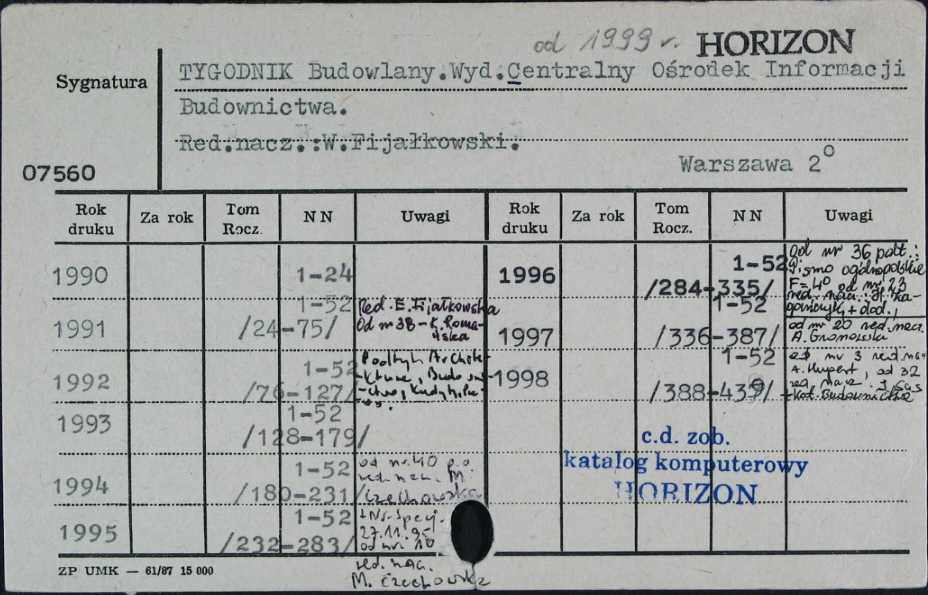 od 1999 r. HORIZON
Sygnatura
TYGODNIK Budowlany.Wyd.Centralny Ośrodek Informacji
Budownictwa.
Red.nacz.:W.Fijałkowski.
Warszawa 2°
07560
Rok druku Za rok Tom Rocz. NN Uwagi Rok druku Za rok Tom Rocz. NN Uwagi
1990 1-24
1991 1-52 /24-75/ Red. E. Fijałkowska
Od nr 38 - K. Roma-
ńska
1992 1-52 /76-127/ Podtyt. Archite-
1993 1-52 /128-179/
1994 1-52 /180-231/ od nr 40 p.o.
red. nacz. M.
Czechowska
1995 1-52 /232-283/ + Nr spec.
27.11.95
od nr 10
red. nacz.
M. Czechowska
1996 1-52 /284-335/ Od nr 36 podt.:
Pismo ogólnopolskie
F=4° od nr 23
+ dod.,
1997 1-52 /336-387/ od nr 20 red. nacz.
A. Gromowska
1998 1-52 /388-439/ od nr 3 red. nacz.
A. Hupert, od 32
red. nacz.
c.d. zob.
katalog komputerowy
HORIZON
ZP UMK — 61/87 15 000